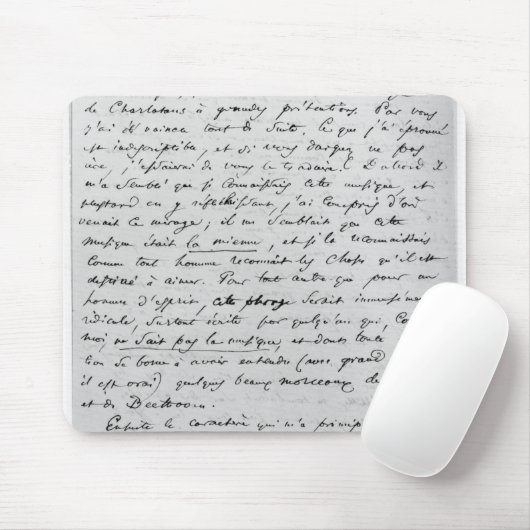 de Charlatans à grandes prétentions. Par vous
j'ai été vaincu tout de suite. Ce que j'ai éprouvé
est indescriptible, et si vous daignez ne pas
rire, j'essaierai de vous le traduire. D'abord il
m'a semblé que je connaissais cette musique, et
plus tard en y réfléchissant, j'ai compris d'où
venait ce mirage; il me semblait que cette
musique était la mienne, et je la reconnaissais
comme tout homme reconnaît les choses qu'il est
destiné à aimer. Pour tout autre que pour un
homme d'esprit, cette phrase serait immensément
ridicule, surtout écrite par quelqu'un qui, comme
moi, ne sait pas la musique, et dont toute
se borne à avoir entendu (avec grand
il est vrai) quelques beaux morceaux de
et de Beethoven.
Ensuite le caractère qui m'a